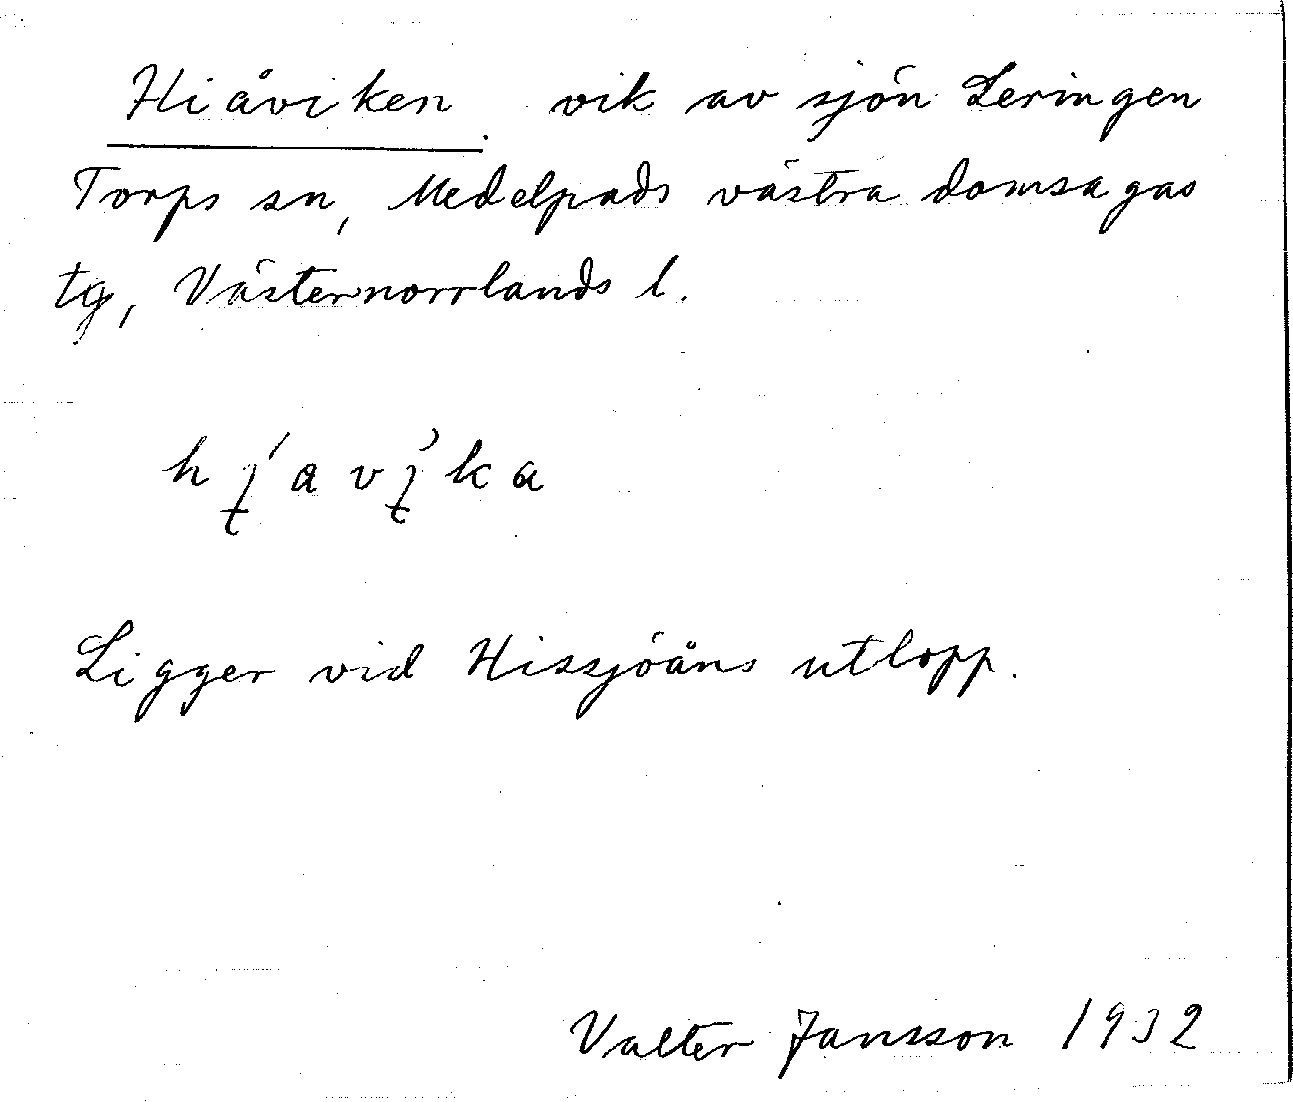 Hiåviken. vik av sjön Leringen
Torps sn, Medelpads västra domsagas
tg, Västernorrlands l.
Ligger vid Hissjöåns utlopp.
Valter Jansson 1932